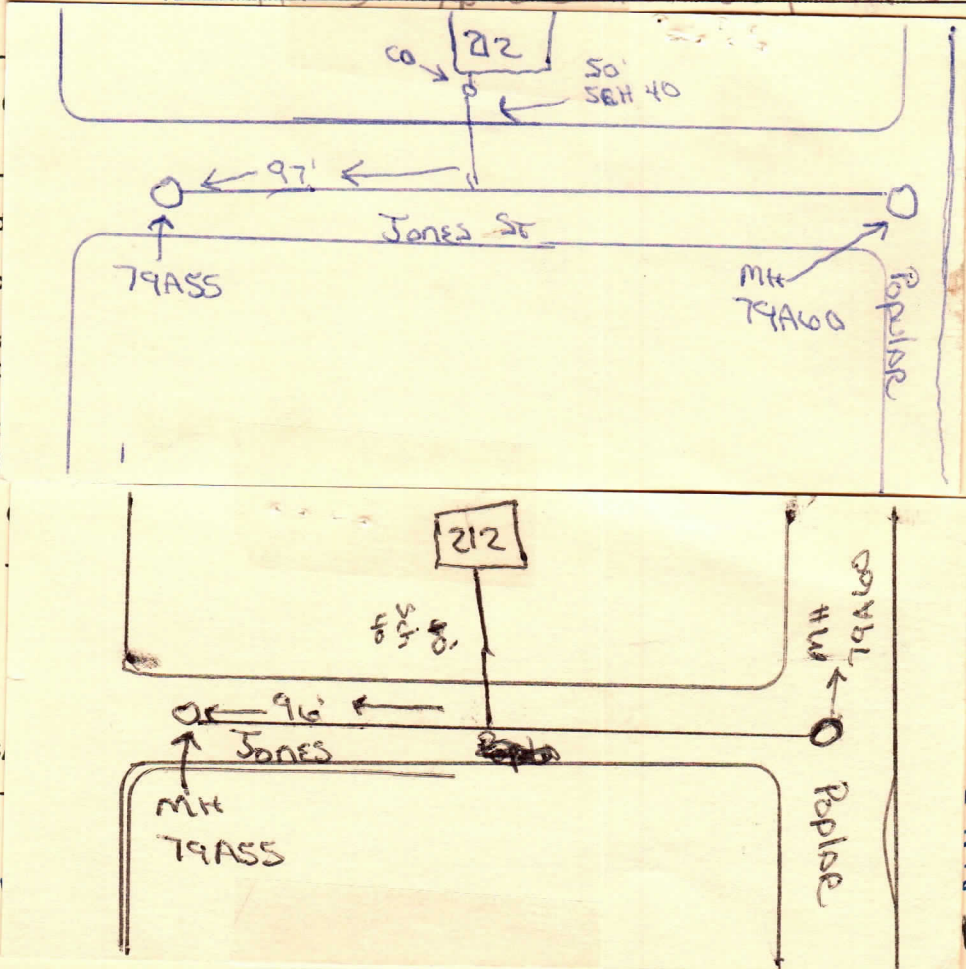 212
CO
50'
SCH 40
97'
Jones St
79A55
MH
79A60
Popular
212
96'
Jones
MH
79A60
MH
79A55
Poplar